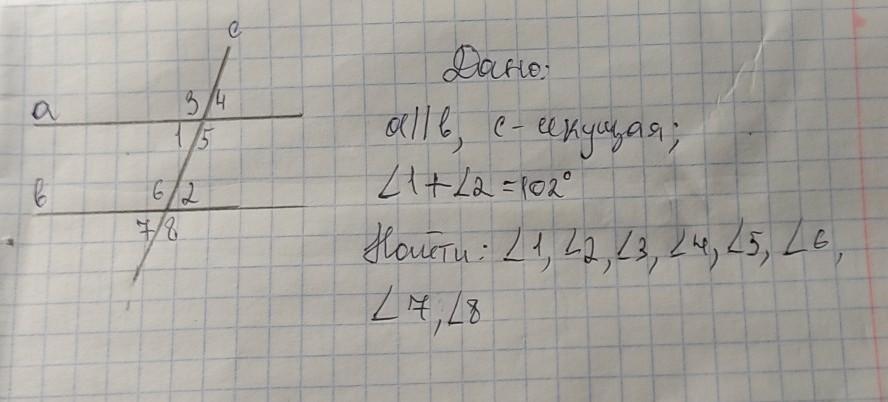 c
a 3 4
1 5
в 6 2
7 8
Дано:
a||в, c-секущая;
∠1+∠2=102°
Найти: ∠1, ∠2, ∠3, ∠4, ∠5, ∠6,
∠7, ∠8